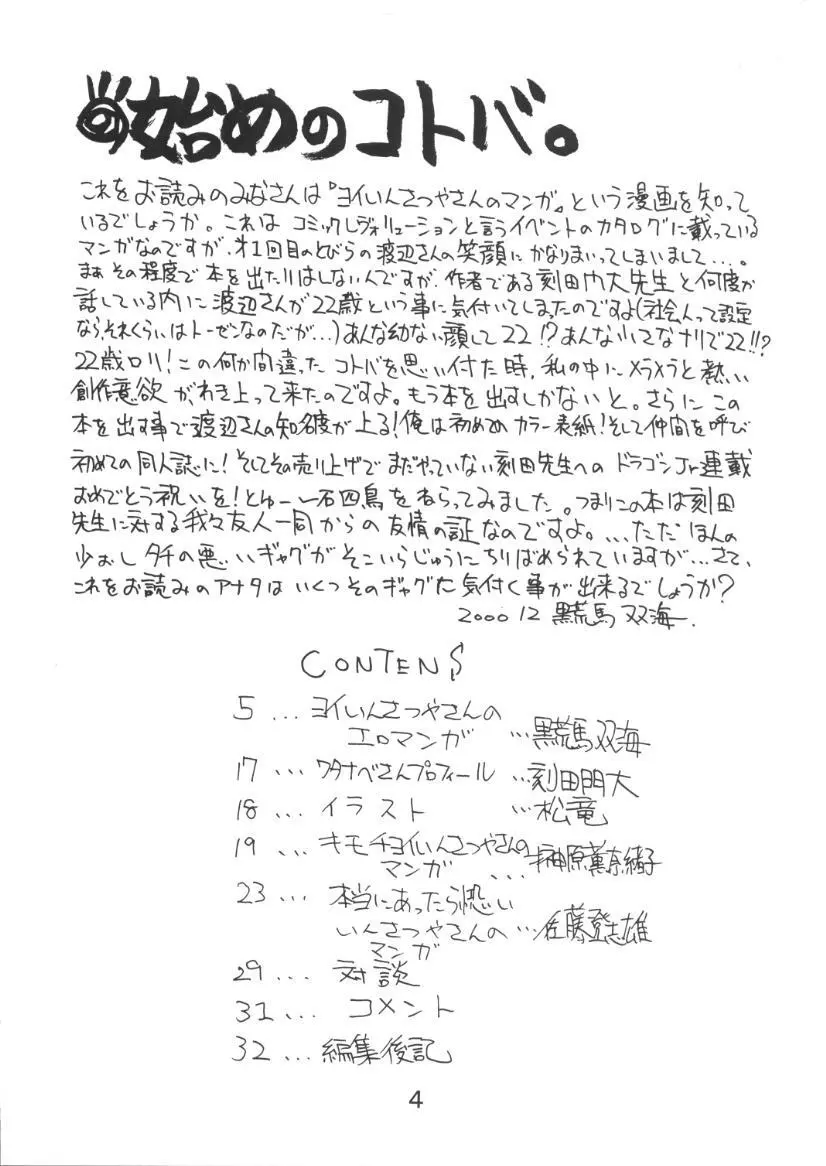 の始めのコトバ。
これをお読みのみなさんは『ヨイいんさつやさんのマンガ』という漫画を知って
いるでしょうか。これはコミックレヴォリューションと言うイベントのカタログに載っている
マンガなのですが、オ1回目のとびらの渡辺さんの笑顔にかなりまいってしまいまして…。
まぁその程度で本を出たりはしないんですが、作者である刻田門大先生と何度か
話している内に渡辺さんが22歳という事に気付いてしまったのですよ(社会人って設定
なら、それくらいはトーゼンなのだが…)あんな幼ない顔して22!?あんな小てなナリで22!!?
22歳ロリ!この何か間違ったコトバを思い付た時、私の中にメラメラと熱い
創作意欲がわき上って来たのですよ。もう本を出すしかないと。さらにこの
本を出す事で渡辺さんの知名度が上る!俺は初めてのカラー表紙!そして仲間を呼び
初めての同人誌に!そしてその売り上げでまだやっていない刻田先生へのドラゴンJr連載
おめでとう祝いを!とゆー一石四鳥をねらってみました。つまりこの本は刻田
先生に対する我々友人一同からの友情の証なのですよ。…ただほんの
少おしタチの悪いギャグがそこいらじゅうにちりばめられていますが…さて、
これをお読みのアナタはいくつそのギャグに気付く事が出来るでしょうか?
2000 12 黒荒馬双海.
CONTENS
5 … ヨイいんさつやさんの
エロマンガ …黒荒馬双海
17 … ワタナベさんプロフィール …刻田門大
18 … イラスト …松竜
19 … キモチヨイいんさつやさんの
マンガ …榊原薫奈緒子
23 … 本当にあったら恐い
いんさつやさんの …佐藤登志雄
マンガ
29 … 対談
31 … コメント
32 … 編集後記
4